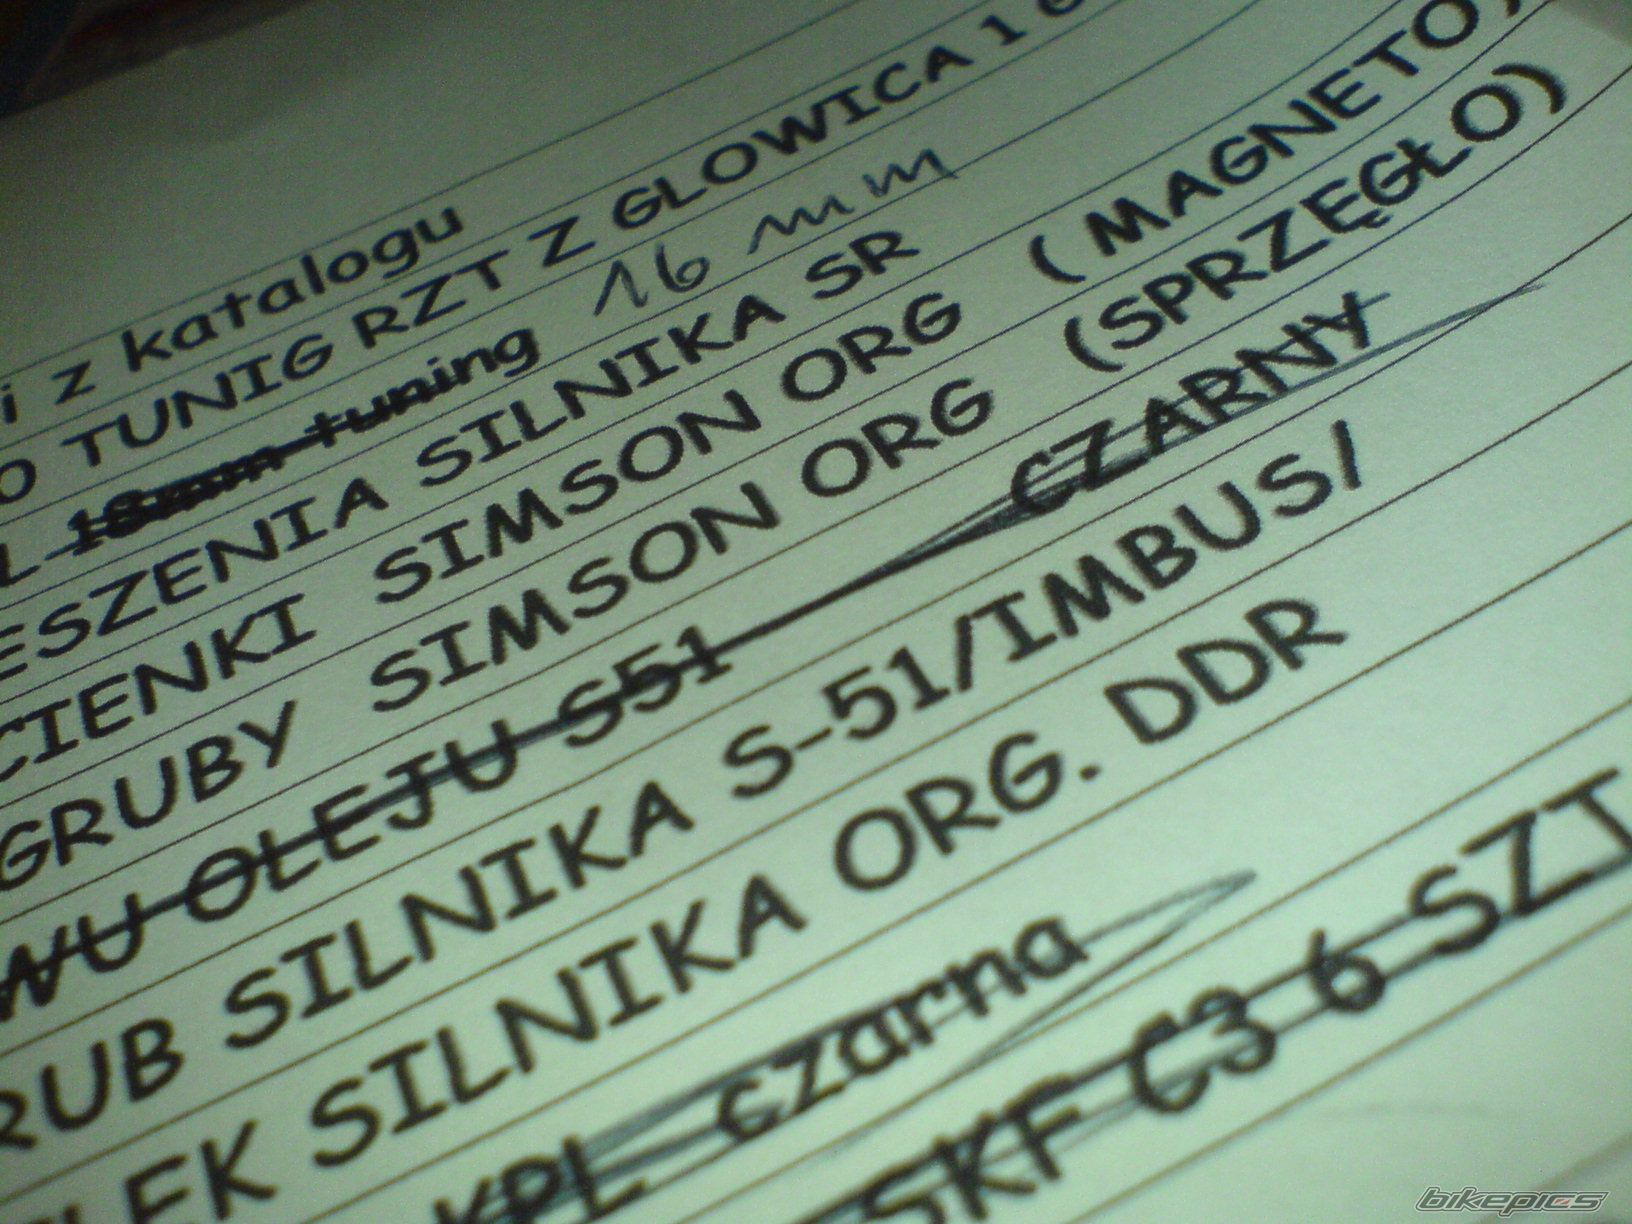 i z katalogu
O TUNIG RZT Z GLOWICA 1 6
L 18mm tuning 16 mm
ESZENIA SILNIKA SR
CIENKI SIMSON ORG (MAGNETO)
GRUBY SIMSON ORG (SPRZĘGŁO)
WU OLEJU S51 CZARNY
RUB SILNIKA S-51/IMBUS/
LEK SILNIKA ORG. DDR
KPL czarna
SKF C3 6 SZT
bikepics